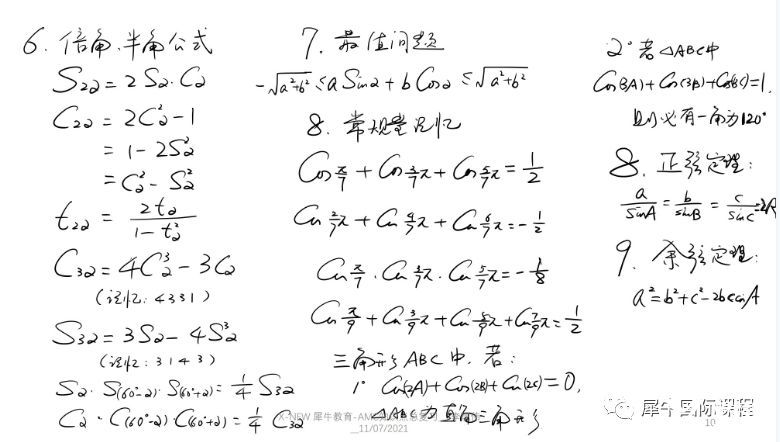 6. 倍角.半角公式
S₂₂ = 2S₂·C₂
C₂₂ = 2C₂² - 1
= 1 - 2S₂²
= C₂² - S₂²
t₂₂ = 2t₂ / 1 - t₂²
C₃₂ = 4C₂³ - 3C₂
(记忆: 4331)
S₃₂ = 3S₂ - 4S₂³
(记忆: 3143)
S₂·S(60°-2)·S(60°+2) = 1/4 S₃₂
C₂·C(60°-2)·C(60°+2) = 1/4 C₃₂
7. 最值问题
-√a²+b² ≤ a Sin2 + b Cos2 ≤ √a²+b²
8. 常规量记忆
Cos π/7 + Cos 3/7π + Cos 5/7π = 1/2
Cos 2/7π + Cos 4/7π + Cos 6/7π = -1/2
Cos π/7 · Cos 3/7π · Cos 5/7π = -1/8
Cos π/9 + Cos 3/9π + Cos 5/9π + Cos 7/9π = 1/2
三角形ABC中.若:
1° Cos(2A)+Cos(2B)+Cos(2C)=0,
△ABC为直角三角形
2° 若△ABC中
Cos(3A)+Cos(3B)+Cos(3C)=1,
则必有一角为120°
8. 正弦定理:
a/sinA = b/sinB = c/sinC = 2R
9. 余弦定理:
a²=b²+c²-2bccosA
X-NEW 犀牛教育-AM
11/07/2021
10
犀牛国际课程